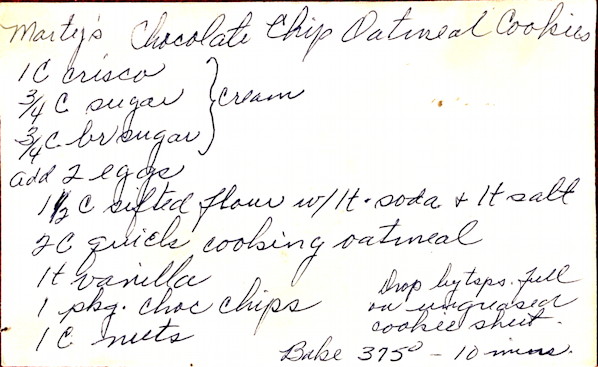 Marty's Chocolate Chip Oatmeal Cookies
1 C crisco
3/4 C sugar } cream
3/4 C br sugar
add 2 eggs
1 1/2 C sifted flour w/ 1t. soda + 1t salt
2C quick cooking oatmeal
1t vanilla
1 pkg. choc chips
1 C nuts
Drop by tsps. full
on ungreased
cookie sheet.
Bake 375° - 10 mins.